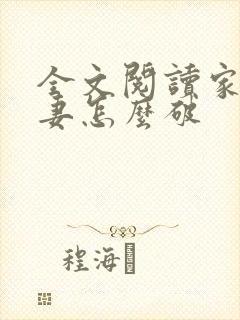 全文閱讀家
妻怎麼破
程海